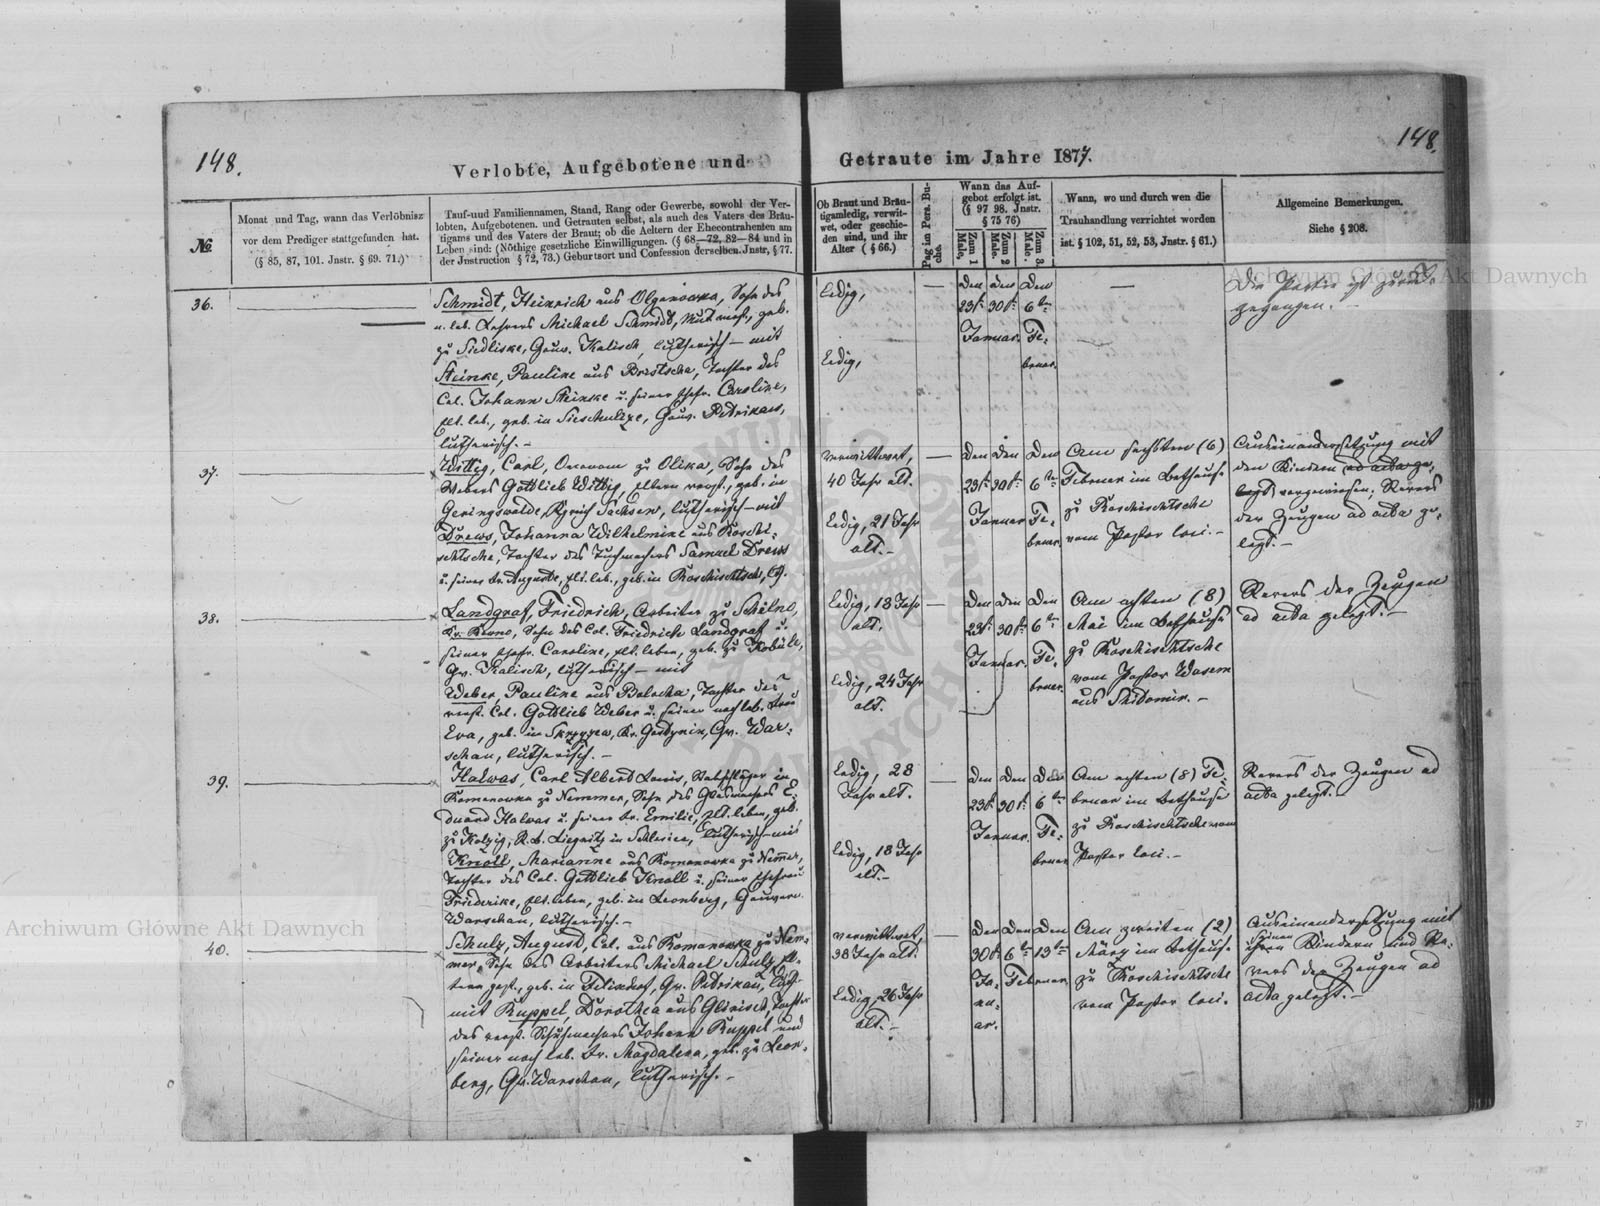 148.
148.
Verlobte, Aufgebotene und
Getraute im Jahre 1877.
№
Monat und Tag, wann das Verlöbnisz
vor dem Prediger stattgefunden hat.
(§ 85, 87, 101. Jnstr. § 69. 71.)
Tauf-uud Familiennamen, Stand, Rang oder Gewerbe, sowohl der Ver-
lobten, Aufgebotenen. und Getrauten selbst, als auch des Vaters des Bräu-
tigams und des Vaters der Braut; ob die Aeltern der Ehecontrahenten am
Leben sind; (Nöthige gesetzliche Einwilligungen. (§ 68—72, 82—84 und in
der Jnstruction § 72, 73.) Geburtsort und Confession derselben. Jnstr, § 77.
Ob Braut und Bräu-
tigam ledig, verwit-
wet, oder geschie-
den sind, und ihr
Alter ( § 66.)
Pag im Pers. Bu-
che.
Wann das Auf-
gebot erfolgt ist.
(§ 97 98. Jnstr.
§ 75 76)
Zum 1 Male.
Zum 2 Male.
Zum 3 Male.
Wann, wo und durch wen die
Trauhandlung verrichtet worden
ist. § 102, 51, 52, 53, Jnstr. § 61.)
Allgemeine Bemerkungen.
Siehe § 208.
36.
Schmidt, Heinrich aus Olganowka, Sohn des
n. leb. Lehrers Michael Schmidt, Mutt. verst., geb.
zu Siedliske, Gouv. Kalisch, lutherisch – mit
Steinke, Pauline aus Bristscha, Tochter des
Col. Johann Steinke u. seiner Ehefr. Caroline,
Elt. leb., geb. in Gouv. Petrikau,
lutherisch. –
ledig,
ledig,
—
den
23t
Januar.
den
30t.
den
6ten
Fe-
bruar.
—
Die Partie ist zurück-
gegangen. –
37.
Wittig, Carl, Oeconom zu Olika, Sohn des
Webers Gottlieb Wittig, Eltern verst., geb. in
Geringswalde, Kgreich Sachsen, lutherisch – mit
Drews, Johanna Wilhelmine aus Roschi-
schtsche, Tochter des Tuchmachers Samuel Drews
u. seiner Fr. Auguste, Elt. leb., geb. in Roschischtsch,
verwittwet,
40 Jahr alt.
ledig, 21 Jahr
alt. –
—
den
23t.
Januar
den
30t.
den
6ten
Fe-
bruar.
Am sechsten (6)
Februar im Bethause
zu Roschischtsche
vom Pastor loci. –
Auseinandersetzung mit
den Kindern ad acta ge-
legt, vorgewiesen; Revers
der Zeugen ad acta ge-
legt. –
38.
Landgraf, Friedrich, Arbeiter zu Schelno,
Kr. Sohn des Col. Friedrich Landgraf u.
seiner Ehefr. Caroline, Elt. leben, geb. zu
Gv. Kalisch, lutherisch – mit
Weber, Pauline aus Tochter des
verst. Col. Gottlieb Weber u. seiner noch leb. Frau
Eva, geb. in Kr. Gostynin, Gv. War-
schau, lutherisch. –
ledig, 18 Jahr
alt.
ledig, 24 Jahr
alt.
—
den
23t.
Januar.
den
30t.
den
6ten
Fe-
bruar.
Am achten (8)
Mai im Bethause
zu Roschischtsche
vom Pastor Wasem
aus Shitomir. –
Revers der Zeugen
ad acta gelegt. –
39.
Halwas, Carl Albert Louis, in
Romanowka zu Nemmer, Sohn des E-
duard Halwas u. seiner Fr. Emilie, Elt. leben, geb.
zu Kolzig, R. b. Liegnitz in Schlesien, lutherisch – mit
Knoll, Marianne aus Romanowka zu Nemer,
Tochter des Col. Gottlieb Knoll u. seiner Ehefrau
Friederike, Elt. leben, geb. in Leonberg, Gouvern.
Warschau, lutherisch. –
ledig, 28
Jahr alt.
ledig, 18 Jahr
alt. –
—
den
23t.
Januar.
den
30t.
den
6ten
Fe-
bruar
Am achten (8) Fe-
bruar im Bethause
zu Roschischtsche vom
Pastor loci. –
Revers der Zeugen ad
acta gelegt. –
40.
Schulz, August, Col. aus Romanowka zu Nem-
mer, Sohn des Arbeiters Michael Schulz, El-
tern gest., geb. in Felixdorf, Gv. Petrikau, luth.
mit Ruppel, Dorothea aus Tochter
des verst. Schuhmachers Johann Ruppel und
seiner noch leb. Fr. Magdalena, geb. zu Leon-
berg, Gv. Warschau, lutherisch. –
verwittwet,
38 Jahr alt.
ledig, 26 Jahr
alt. –
—
den
30t.
Ja-
nu-
ar.
den
6ten
Februar
den
13ten
Am zweiten (2)
März im Bethause
zu Roschischtsche
vom Pastor loci.
Auseinandersetzung mit
seinen Kindern und Re-
vers der Zeugen ad
acta gelegt. –
Archiwum Główne Akt Dawnych
Archiwum Główne Akt Dawnych